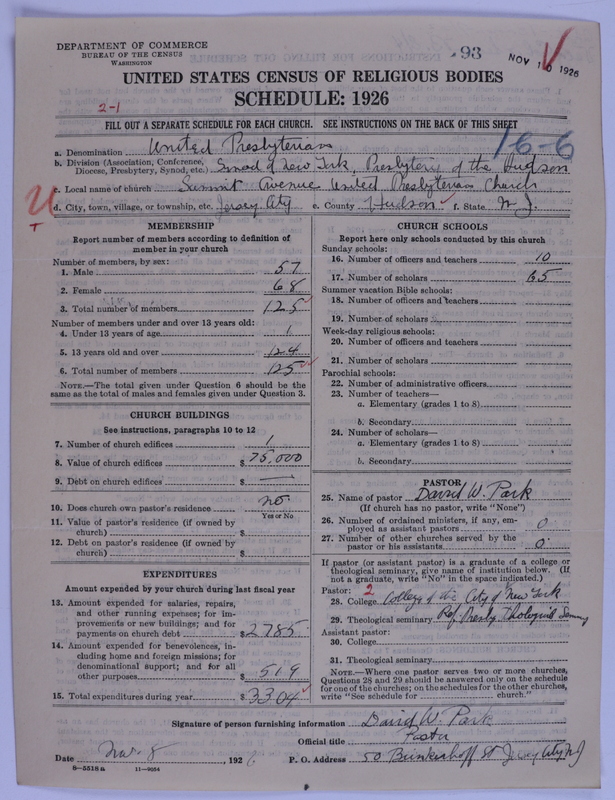 DEPARTMENT OF COMMERCE
BUREAU OF THE CENSUS
WASHINGTON
93
NOV 10 1926
UNITED STATES CENSUS OF RELIGIOUS BODIES
SCHEDULE: 1926
2-1
FILL OUT A SEPARATE SCHEDULE FOR EACH CHURCH. SEE INSTRUCTIONS ON THE BACK OF THIS SHEET
16-6
a. Denomination United Presbyterian
b. Division (Association, Conference, Diocese, Presbytery, Synod, etc.) Synod of New York, Presbytery of the Hudson
c. Local name of church Summit Avenue United Presbyterian Church
d. City, town, village, or township, etc. Jersey City e. County Hudson f. State N. J.
MEMBERSHIP
Report number of members according to definition of member in your church
Number of members, by sex:
1. Male 57
2. Female 68
3. Total number of members 125
Number of members under and over 13 years old:
4. Under 13 years of age 1
5. 13 years old and over 124
6. Total number of members 125
NOTE.—The total given under Question 6 should be the same as the total of males and females given under Question 3.
CHURCH BUILDINGS
See instructions, paragraphs 10 to 12
7. Number of church edifices 1
8. Value of church edifices $ 75,000
9. Debt on church edifices $ —
10. Does church own pastor's residence no
Yes or No
11. Value of pastor's residence (if owned by church) $
12. Debt on pastor's residence (if owned by church) $
EXPENDITURES
Amount expended by your church during last fiscal year
13. Amount expended for salaries, repairs, and other running expenses; for improvements or new buildings; and for payments on church debt $ 2785
14. Amount expended for benevolences, including home and foreign missions; for denominational support; and for all other purposes $ 519
15. Total expenditures during year $ 3304
CHURCH SCHOOLS
Report here only schools conducted by this church
Sunday schools:
16. Number of officers and teachers 10
17. Number of scholars 65
Summer vacation Bible schools:
18. Number of officers and teachers
19. Number of scholars
Week-day religious schools:
20. Number of officers and teachers
21. Number of scholars
Parochial schools:
22. Number of administrative officers
23. Number of teachers—
a. Elementary (grades 1 to 8)
b. Secondary
24. Number of scholars—
a. Elementary (grades 1 to 8)
b. Secondary
PASTOR
25. Name of pastor David W. Park
(If church has no pastor, write "None")
26. Number of ordained ministers, if any, employed as assistant pastors 0
27. Number of other churches served by the pastor or his assistants 0
If pastor (or assistant pastor) is a graduate of a college or theological seminary, give name of institution below. (If not a graduate, write "No" in the space indicated.)
Pastor: 2
28. College College of the City of New York
29. Theological seminary Ref. Presby. Theological Seminary
Assistant pastor:
30. College
31. Theological seminary
NOTE.—Where one pastor serves two or more churches, Questions 28 and 29 should be answered only on the schedule for one of the churches; on the schedules for the other churches, write "See schedule for ........ church."
Signature of person furnishing information David W. Park
Official title Pastor
Date Nov. 8, 1926 P. O. Address 50 Brinkerhoff St Jersey City N J
8-5518a 11-9054